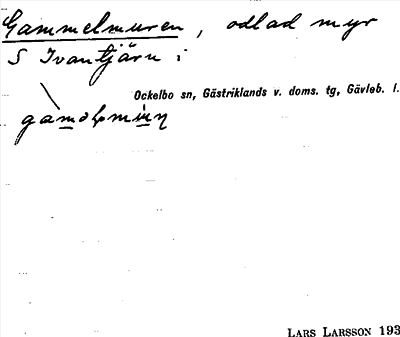 Gammelmuren, odlad myr
S Ivantjärn i
Ockelbo sn, Gästriklands v. doms. tg, Gävleb. l.
LARS LARSSON 193